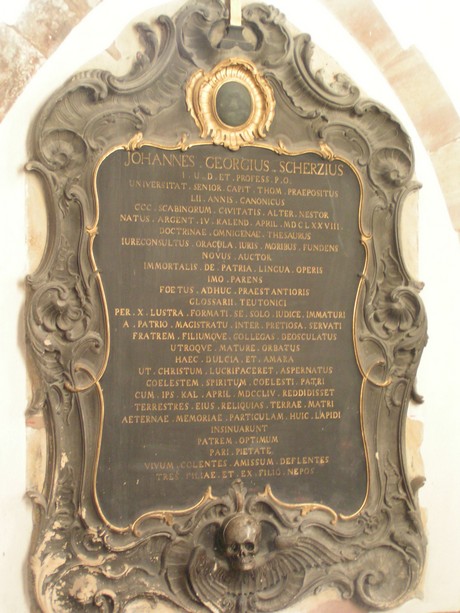 JOHANNES . GEORGIUS . SCHERZIUS
I . U . D . ET . PROFESS . P . O .
UNIVERSITAT . SENIOR . CAPIT . THOM . PRAEPOSITUS
LII . ANNIS . CANONICUS
CCC . SCABINORUM . CIVITATIS . ALTER . NESTOR
NATUS . ARGENT . IV . KALEND . APRIL . MDCLXXVIII
DOCTRINAE . OMNIGENAE . THESAURUS
IURECONSULTUS . ORACULA . IURIS . MORIBUS . FUNDENS
NOVUS . AUCTOR
IMMORTALIS . DE . PATRIA . LINGUA . OPERIS
IMO . PARENS
FOETUS . ADHUC . PRAESTANTIORIS
GLOSSARII . TEUTONICI
PER . X . LUSTRA . FORMATI . SE . SOLO . IUDICE . IMMATURI
A . PATRIO . MAGISTRATU . INTER . PRETIOSA . SERVATI
FRATREM . FILIUMQVE . COLLEGAS . DEOSCULATUS
UTROQVE . MATURE . ORBATUS
HAEC . DULCIA . ET . AMARA
UT . CHRISTUM . LUCRIFACERET . ASPERNATUS
COELESTEM . SPIRITUM . COELESTI . PATRI
CUM . IPS . KAL . APRIL . MDCCLIV . REDDIDISSET
TERRESTRES . EIUS . RELIQUIAS . TERRAE . MATRI
AETERNAE . MEMORIAE . PARTICULAM . HUIC . LAPIDI
INSINUARUNT
PATREM . OPTIMUM
PARI . PIETATE
VIVUM . COLENTES . AMISSUM . DEFLENTES
TRES . FILIAE . ET . EX . FILIO . NEPOS